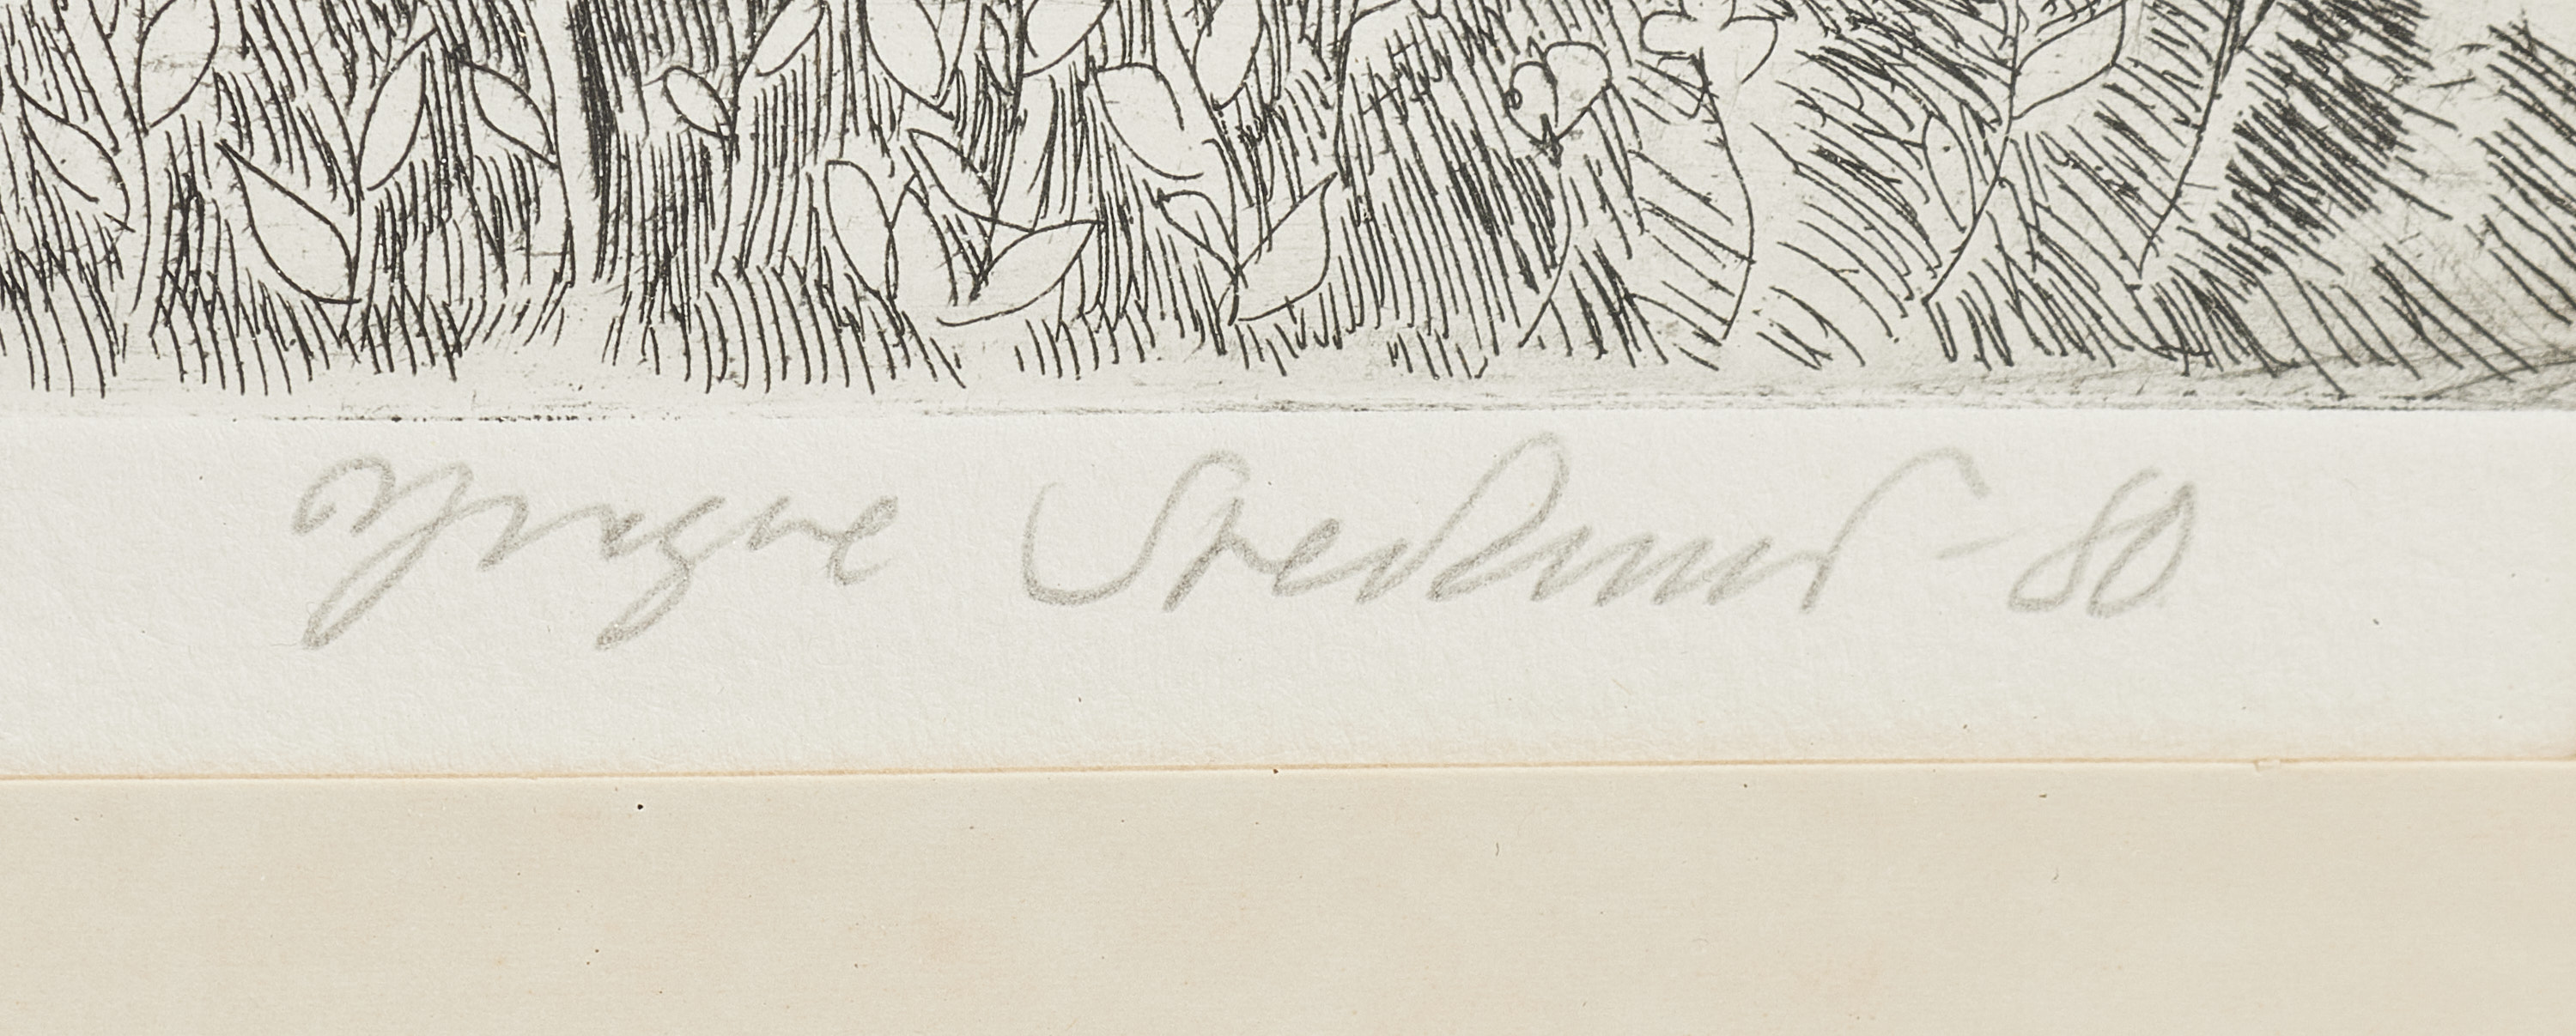 Yngve Svedlund -80